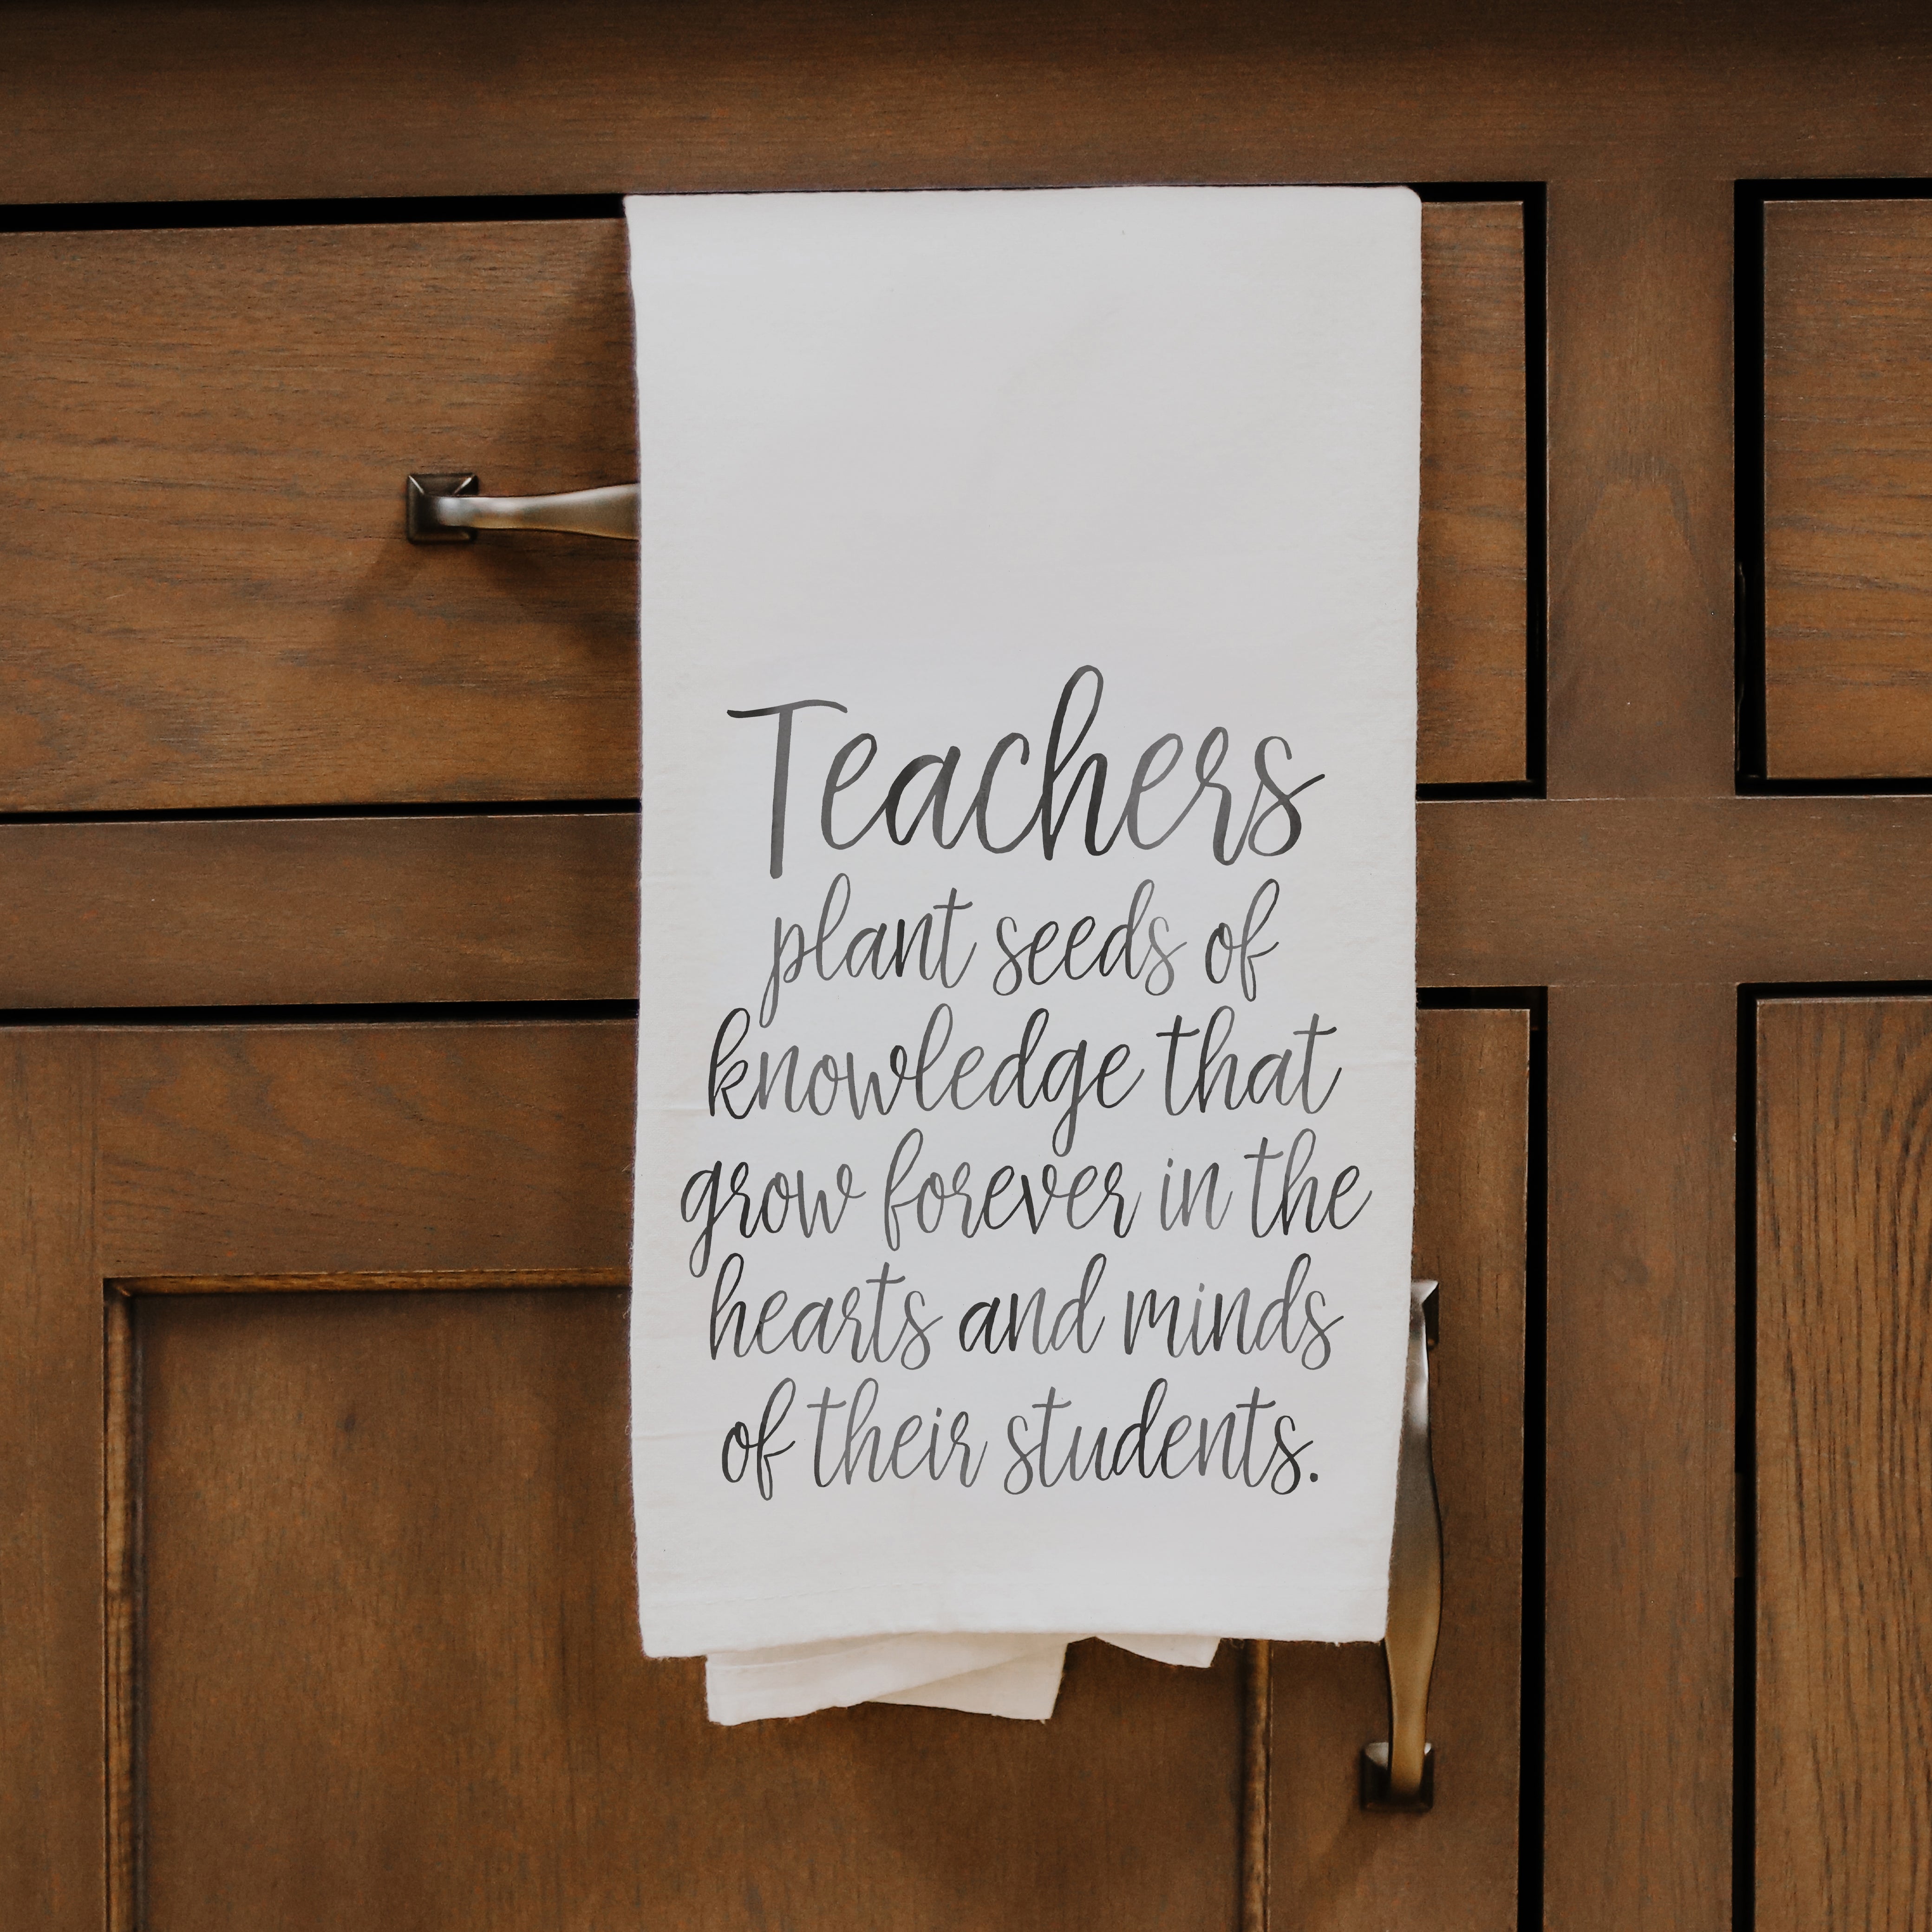 Teachers
plant seeds of
knowledge that
grow forever in the
hearts and minds
of their students.